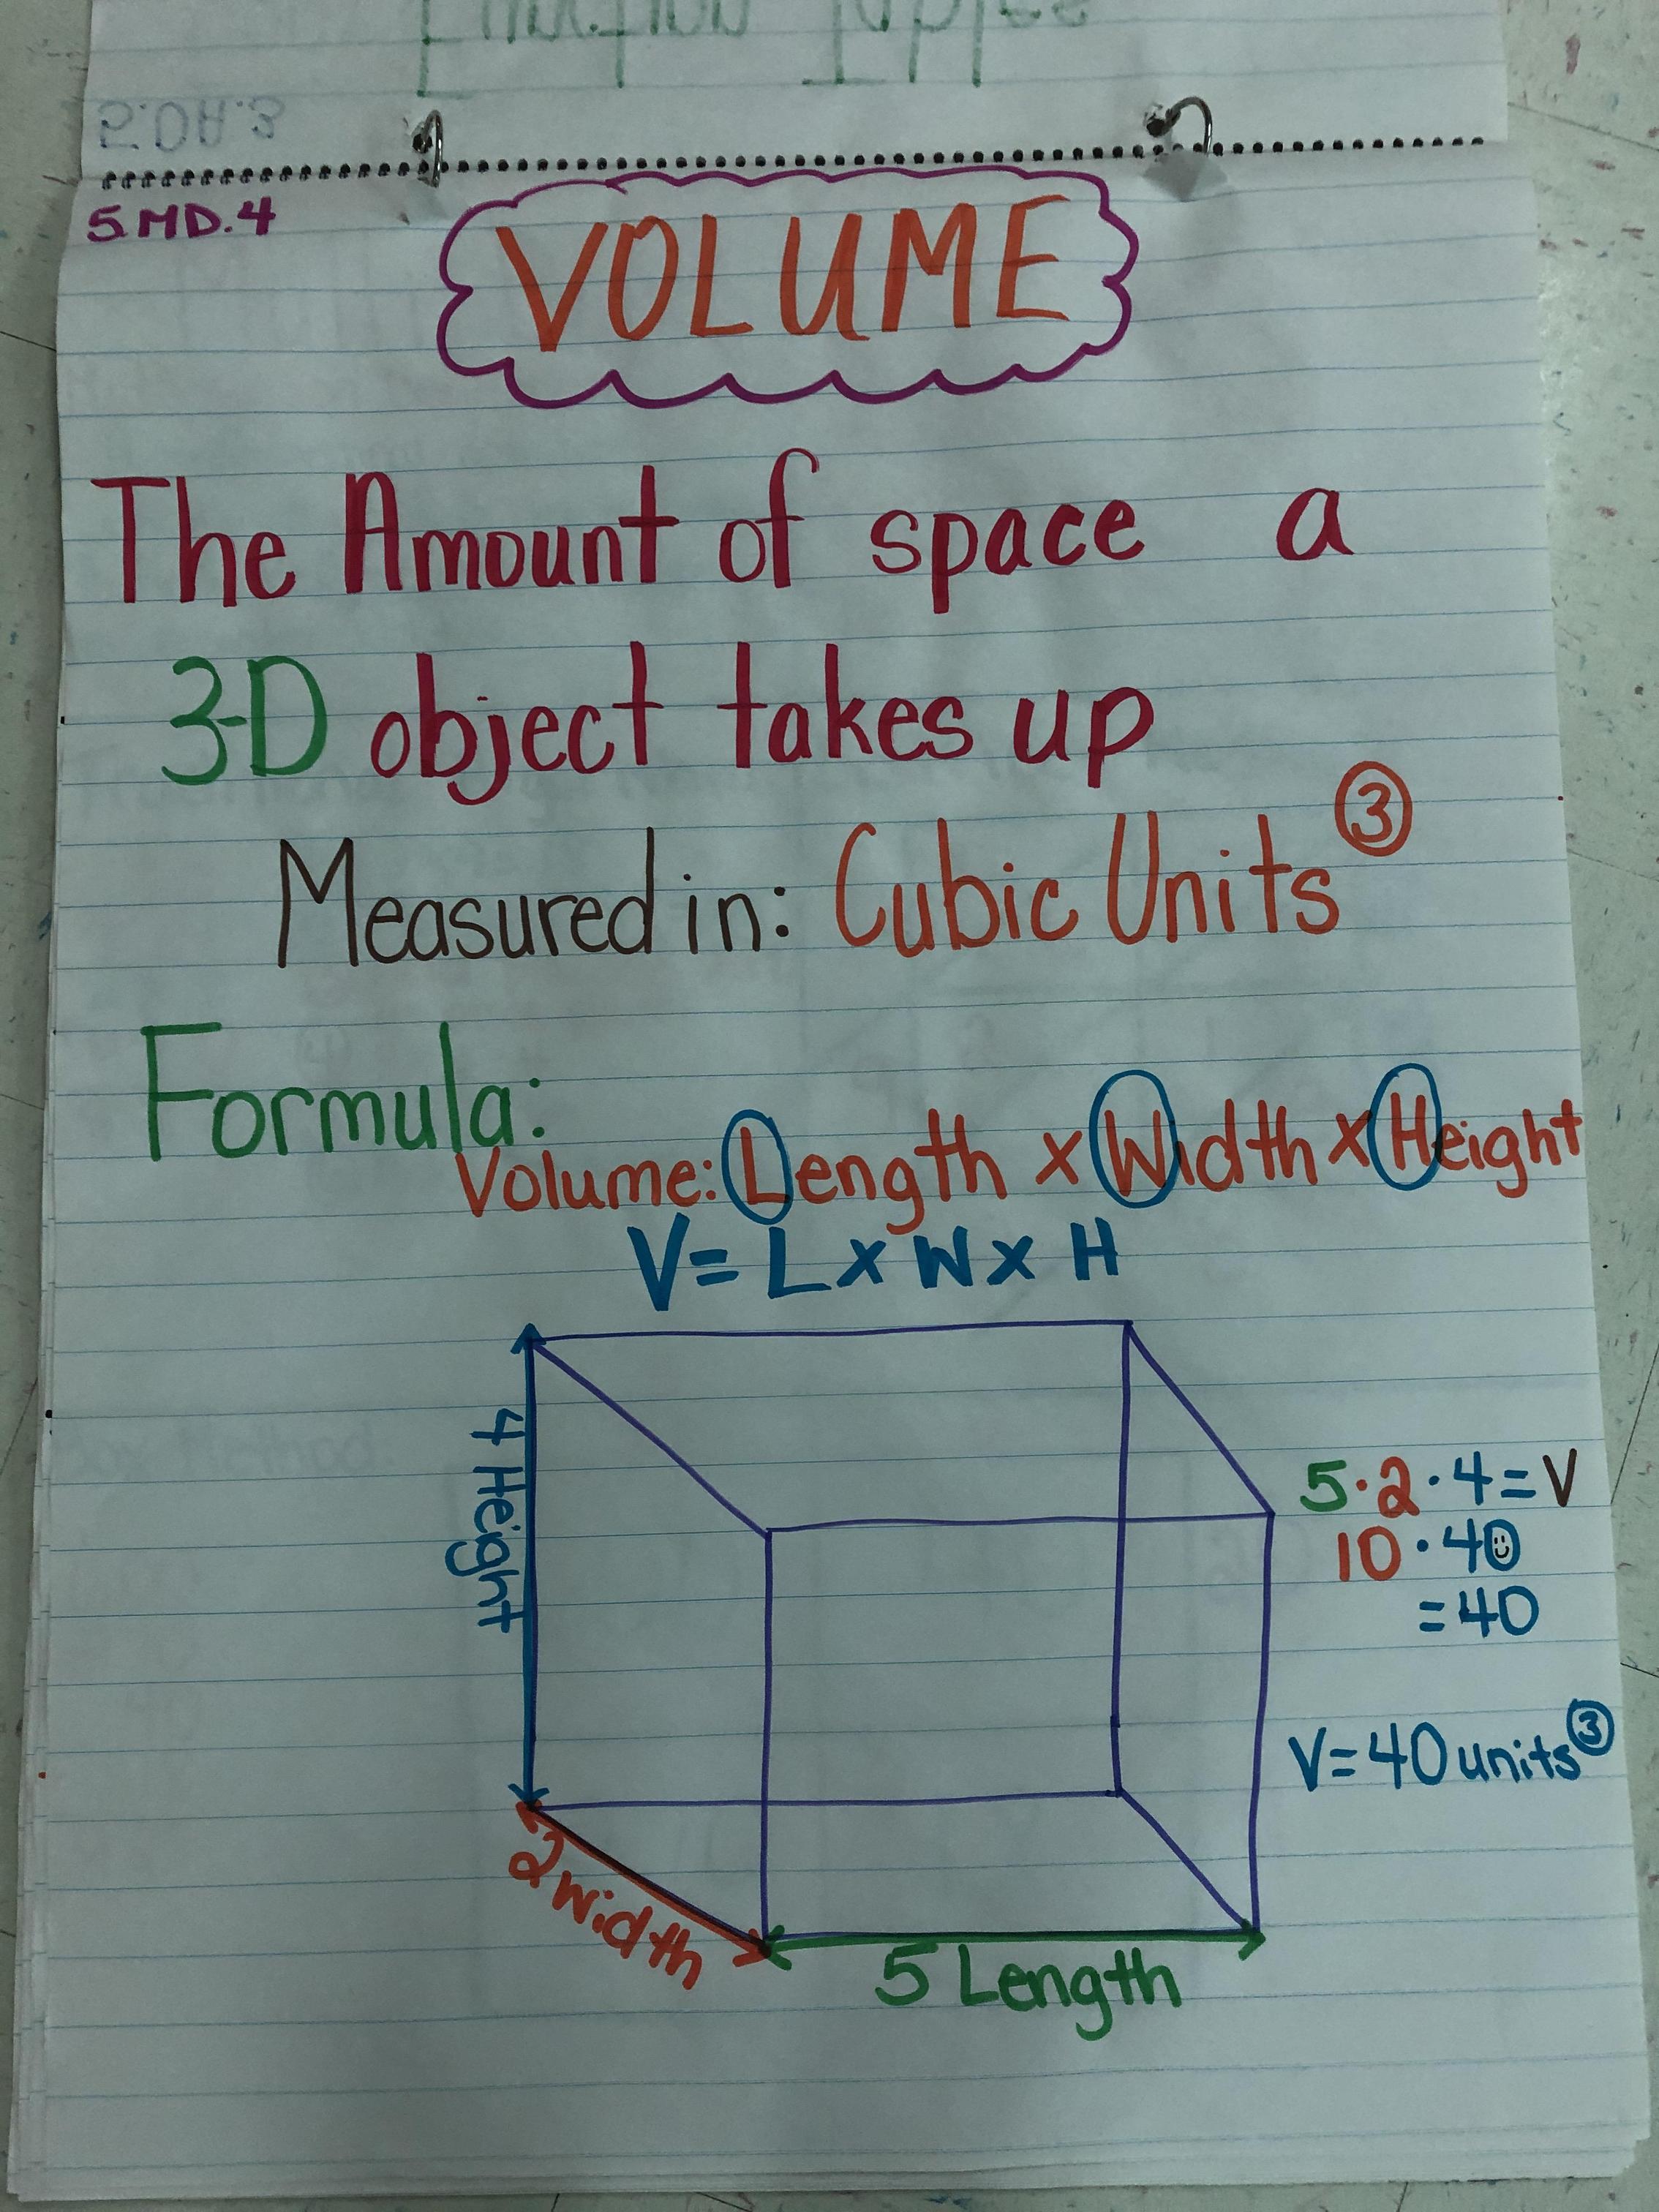 Function Tables
5.OA.3
5.MD.4
VOLUME
The Amount of space a
3-D object takes up
Measured in: Cubic Units³
Formula:
Volume: Length x Width x Height
V= L x W x H
4 Height
5·2·4=V
10·4
=40
V=40 units³
2 Width
5 Length